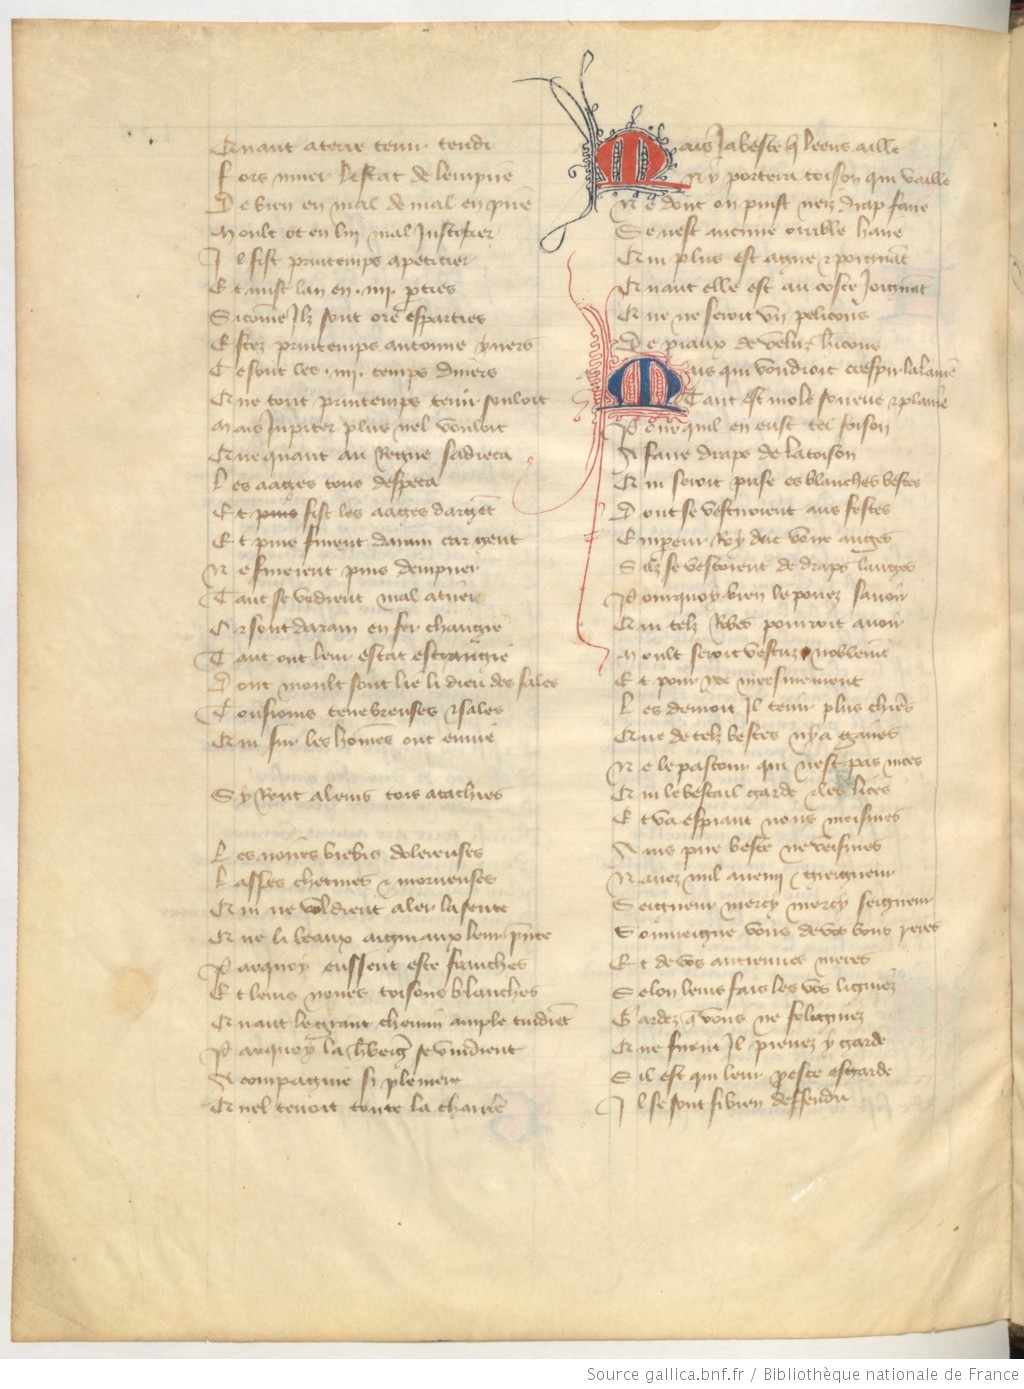 Quant a terre tenir tendi
Fors muer lestat de lempire
De bien en mal de mal en pire
Moult ot en lui mal justicier
Il fist printemps apeticier
Et mist lan en .iiii. parties
Sicome Ilz sont ore esparties
Estez printemps autonne yvers
Ce sont les .iiii. temps divers
Que tout printemps tenir souloit
Mais Jupiter plus nel vouloit
Que quant au Regne sadreca
Les aages tous despeca
Et puis fist les aages dargent
Et puis furent darain car gent
Ne finerent puis dempirer
Tant se vodrent mal atirer
Or sont darain en fer changie
Tant ont leur estat estrangie
Dont moult sont lie li dieu des sales
Tousiours tenebreuses & sales
Qui sur les homes ont envie
Sy Ront a leurs tois atachies
Les noires brebis dolereuses
Lasses chetives & morveuses
Qui ne voldrent aler la sente
Que li beaux aigniaux leur presente
Par quoy eussent este franches
Et leurs noires toisons blanches
Quant le grant chemin ample tindrent
Par quoy la herbergier se vindrent
A compagnie si pleniere
Quel tenoit toute la charriere
Mais Ja beste que leens aille
Ny portera toison qui vaille
Ne dont on puist neiz drap faire
Se nest aucune orrible haire
Qui plus est ague & poignant
Quant elle est au coste Joignant
Que ne seroit un pelicons
De piaux de veluz hicons
Mais qui voudroit crespir la laine
Tant est mole soueve & plaine
Pour quil en eust tel foison
A faire draps de la toison
Qui seroit prise es blanches bestes
Dont se vestiroient aus festes
Empereur Roy duc voire anges
Silz se vestoient de draps langes
Pourquoy bien le povez savoir
Qui telz Robes pourroit avoir
Moult seroit vestuz noblement
Et pour ice meesmement
Les devroit Il tenir plus chiers
Que de telz bestes ny a gaires
Ne le pastour qui nest pas nices
Qui le bestail garde & les lices
Et va espiant nous meismes
Ains pire beste ne veismes
Seigneur mercy mercy seigneur
Souviegne vous de vos bons peres
Et de vos anciennes meres
Selon leurs fais les vos ligniez
Gardez que vous ne foligniez
Que furent Il prenez y garde
Sil est qui leur proesce esgarde
Il se sont si bien deffendu